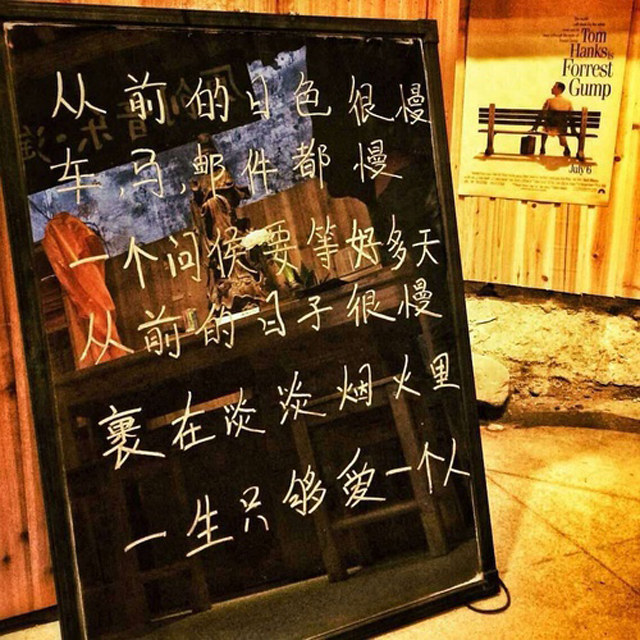 从前的日色很慢
车,马,邮件都慢
一个问候要等好多天
从前的日子很慢
裹在淡淡烟火里
一生只够爱一个人
Tom
Hanks is
Forrest
Gump
July 6